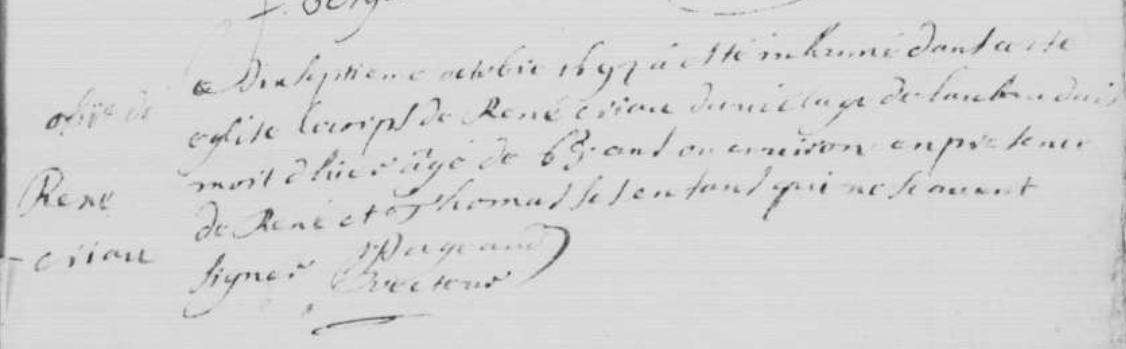 Le Dix septieme octobre 1697 a esté inhumé dans cette
eglise le corps de René criau du vilage de
mort d'hier agé de 65 ans ou environ en presence
de René et Thomas ses enfans qui ne scavent
signer
Recteur
obiit de
René
criau